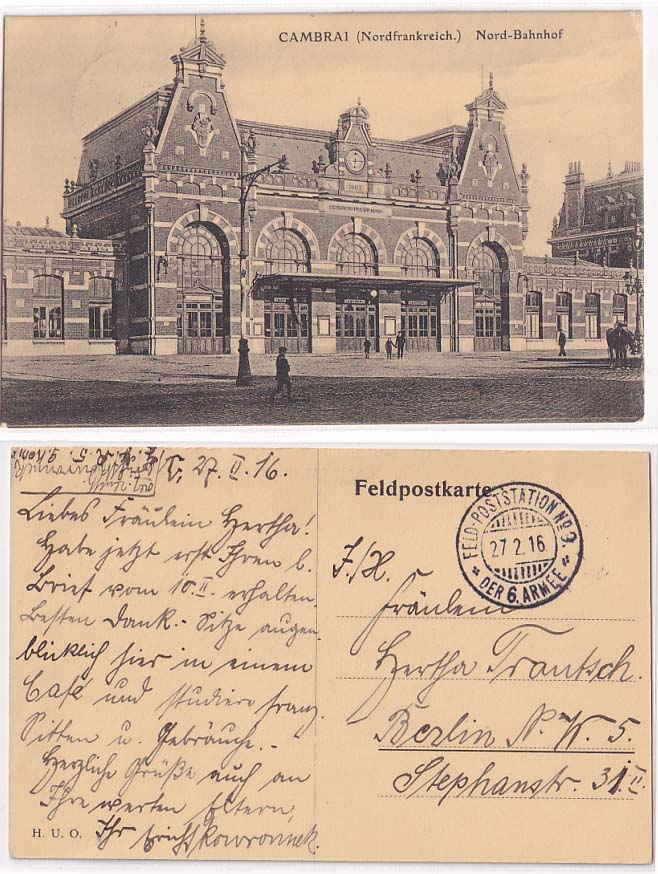 CAMBRAI (Nordfrankreich.) Nord-Bahnhof
27. II. 16.
Liebes Fräulein Hertha!
Habe jetzt erst Ihren l.
Brief vom 10. II. erhalten.
Besten Dank. - Sitze augen-
blicklich hier in einem
Café und studiere franz.
Sitten u. Gebräuche. -
Herzliche Grüße auch an
Ihre werten Eltern,
Ihr Erich Skowronnek.
H. U. O.
Feldpostkarte
FELD-POSTSTATION No 9.
27 2. 16
* DER 6. ARMEE *
Fräulein
Hertha Trautsch.
Berlin N. W. 5.
Stephanstr. 31 II.